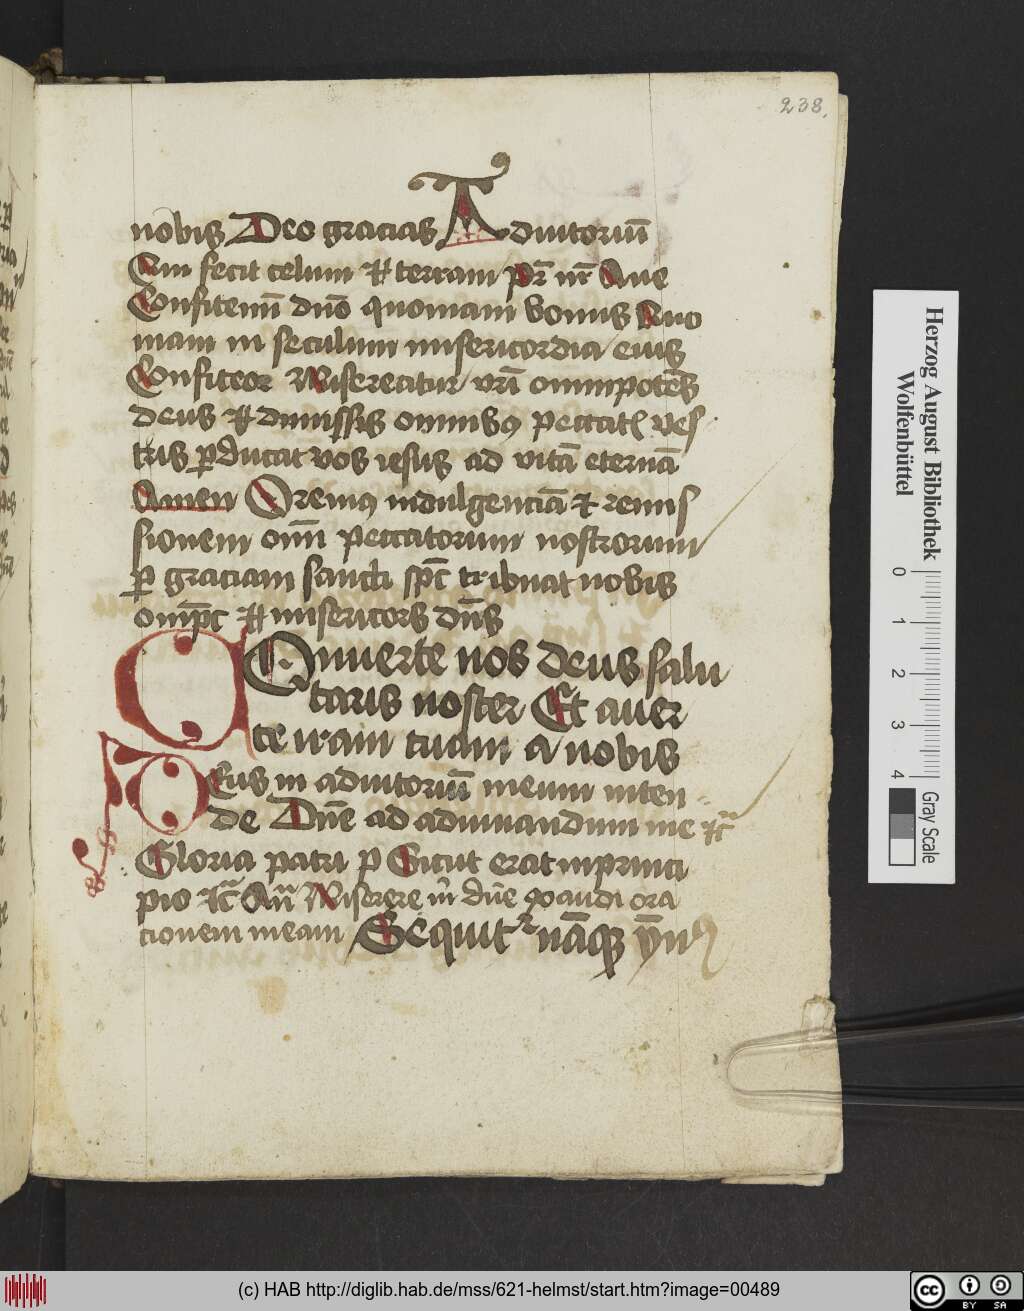 238.
nobis Deo gracias Adiutoriū
Cum fecit celum et terram pr̄ nr̄ Aue
Confitemī dn̄o quoniam bonus Quo
niam in seculum misericordia eius
Confiteor Misereatur vr̄i omnipotēs
deus et dimissis omnibꝯ peccatis ves
tris ꝑducat vos iesus ad vitā eternā
Amen Oremꝯ indulgenciā et remis
sionem om̄ peccatorum nostrorum
ꝑ graciam sancti sp̄c tribuat nobis
omp̄c et misericors dn̄s
Conuerte nos deus salu
taris noster Et auer
te iram tuam a nobis
Deus in adiutoriū meum inten
de Dn̄e ad adiuuandum me etc̄
Gloria patri ꝑ Sicut erat in princi
pio etc̄ An̄ Miserere m̄ dn̄e exaudi ora
cionem meam Sequitur nāqꝫ ymꝯ
Herzog August Bibliothek
Wolfenbüttel
0 1 2 3 4
Gray Scale
(c) HAB http://diglib.hab.de/mss/621-helmst/start.htm?image=00489
cc BY SA